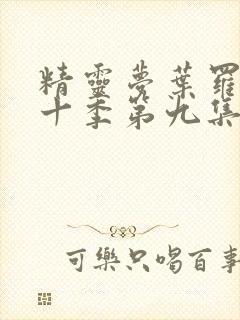 精靈夢葉羅
十季第九集
可樂只喝百事